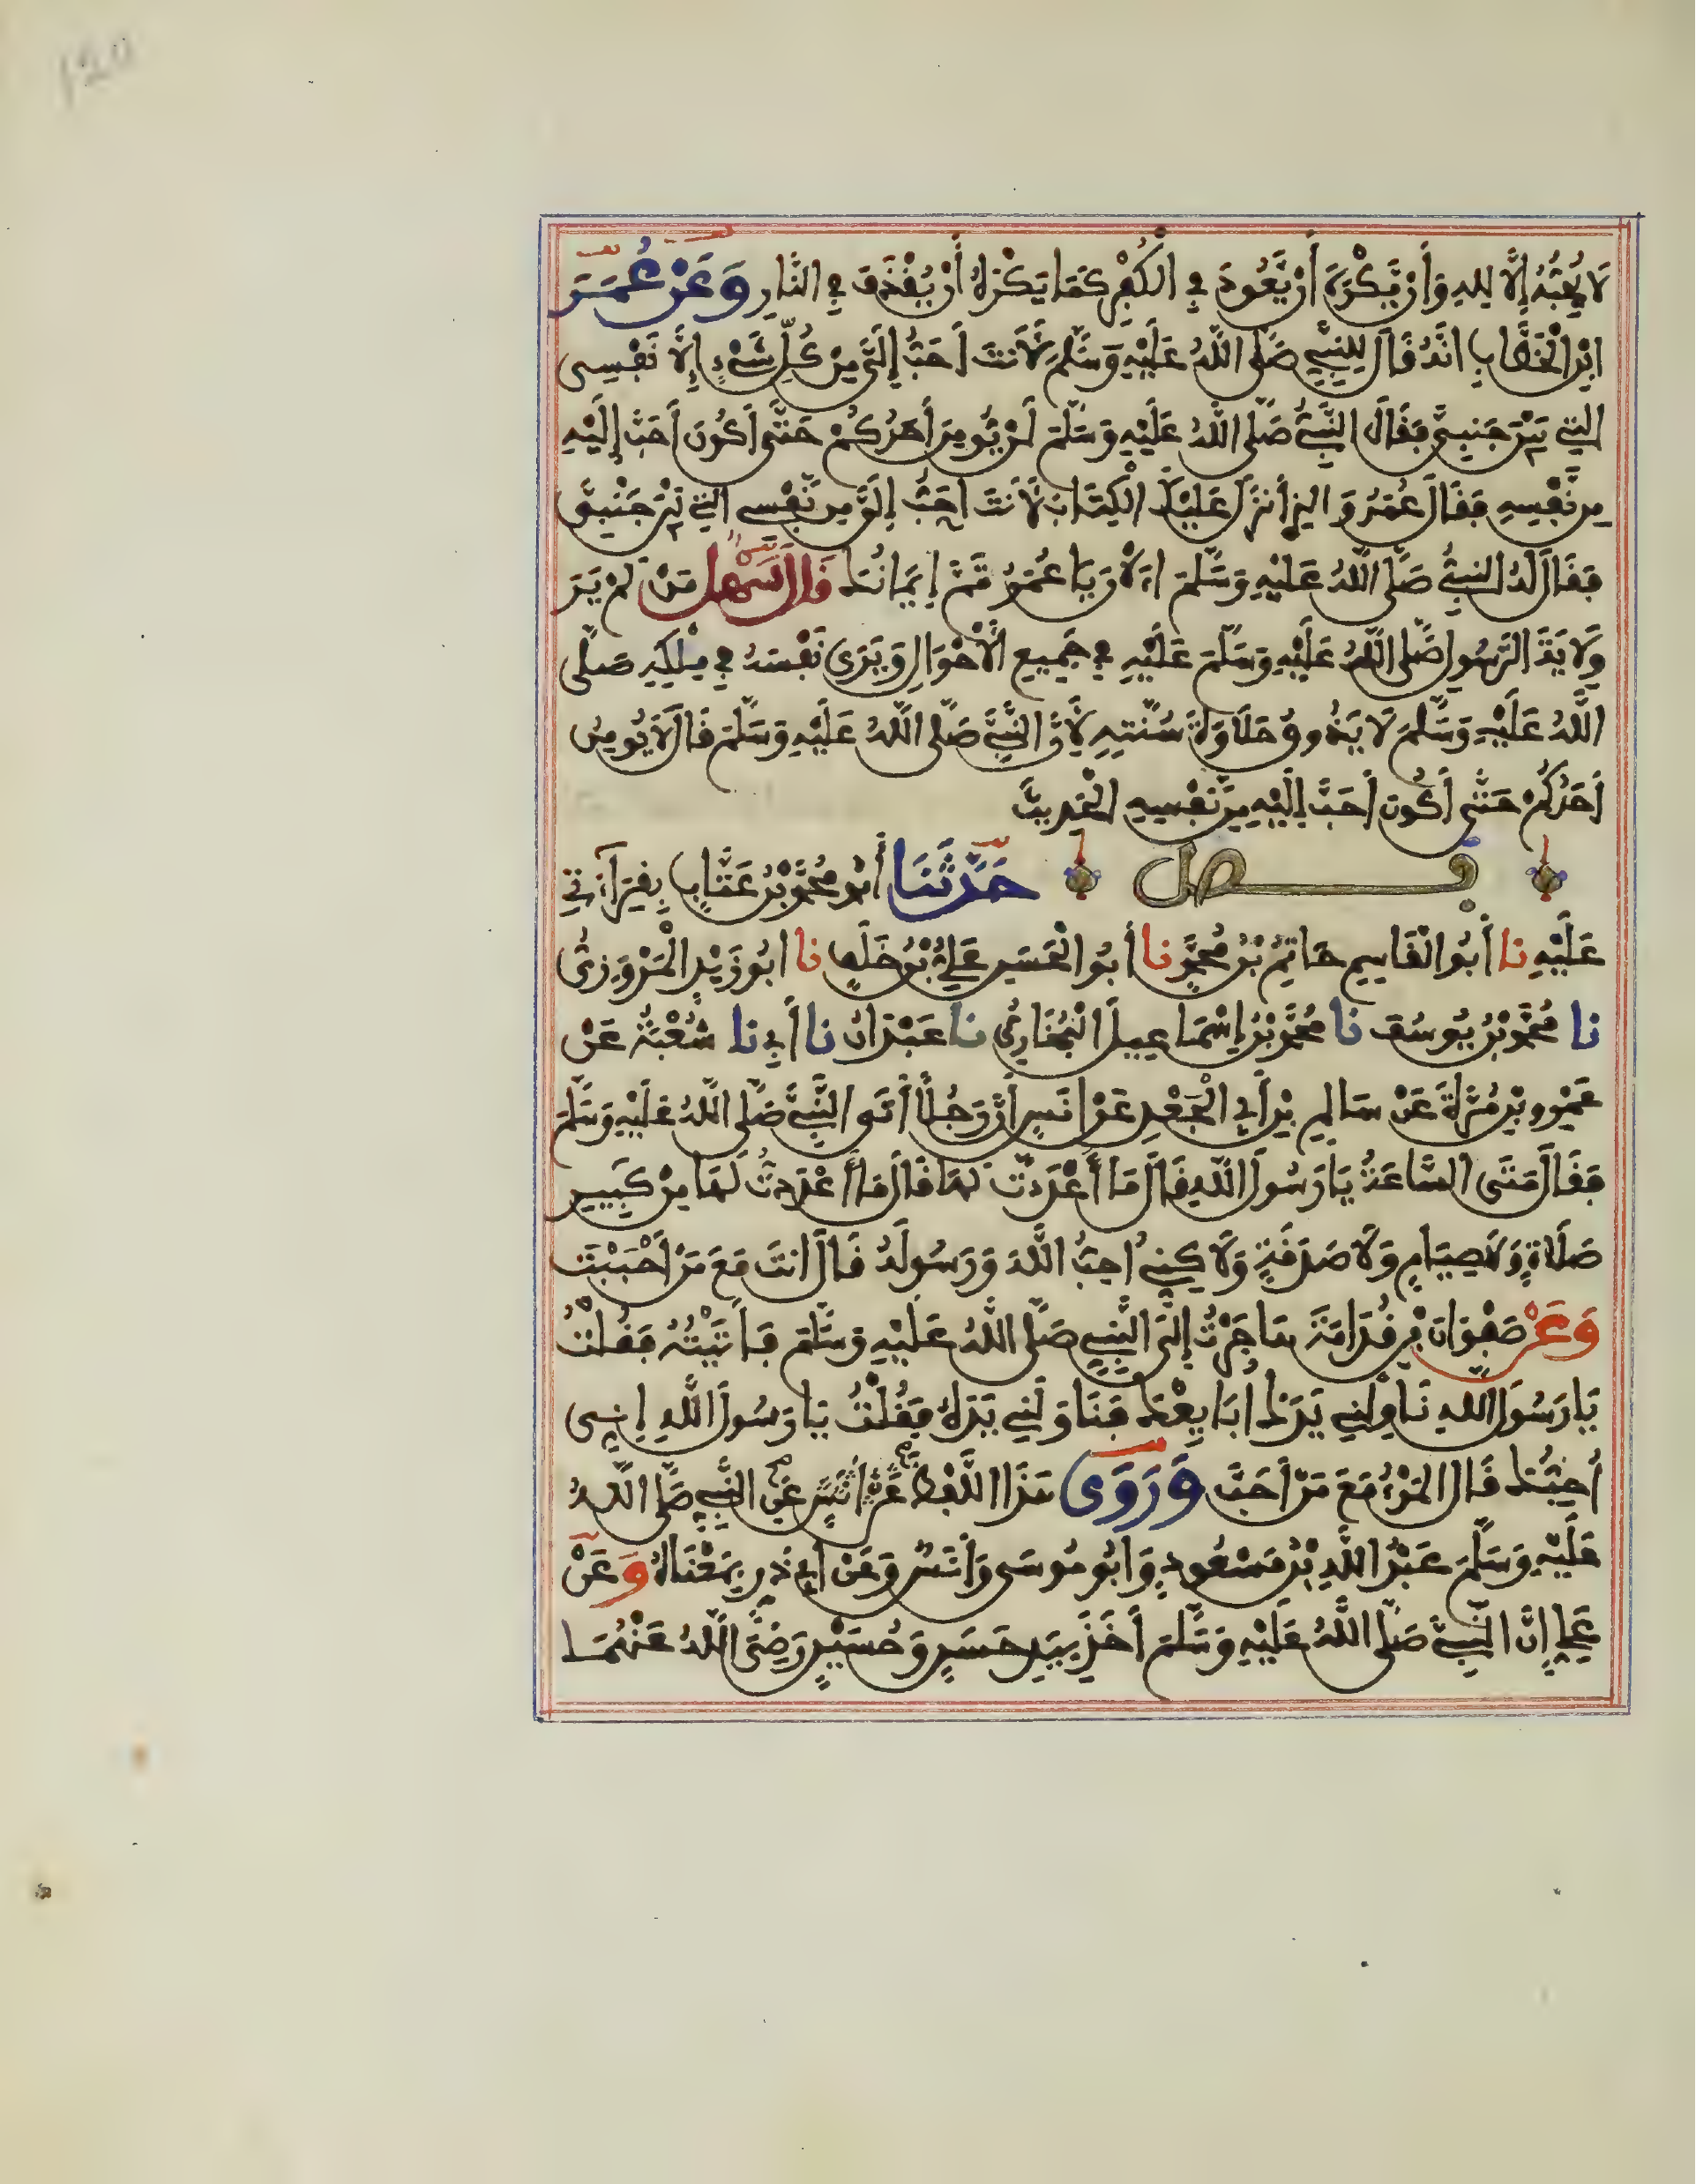 لَا يُحِبُّهُ إِلَّا لِلهِ وَأَن يَّكْرَهَ أَن يَّعُودَ فِي الْكُفْرِ كَمَا يَكْرَهُ أَن يُقْذَفَ فِي النَّارِ وَعَنْ عُمَرَ
ابْنِ الْخَطَّابِ انَّهُ قَالَ لِلنَّبِيِّ صَلَّى اللَّهُ عَلَيْهِ وَسَلَّمَ لَأَنتَ أَحَبُّ إِلَيَّ مِن كُلِّ شَيْءٍ إِلَّا نَفْسِي
التِي بَيْنَ جَنبيَّ فَقَالَ النَّبِيُّ صَلَّى اللَّهُ عَلَيْهِ وَسَلَّمَ لَنْ يُّومِنَ أَحَدُكُمْ حَتَّى أَكُونَ أَحَبَّ إِلَيْهِ
مِن نَّفْسِهِ فَقَالَ عُمَرُ وَالذِي أَنزَلَ عَلَيْكَ الْكِتَابَ لَأَنتَ أَحَبُّ إِلَيَّ مِن نَّفْسِي التِي بَيْنَ جَنْبيَّ
فَقَالَ لَهُ النَّبِيُّ صَلَّى اللَّهُ عَلَيْهِ وَسَلَّمَ اءَلْانَ يَا عُمَرُ تَمَّ إِيمَانُكَ قَالَ سَهْل مَنْ لَمْ يَرَ
وِلَايَةَ الرَّسُولِ صَلَّى اللَّهُ عَلَيْهِ وَسَلَّمَ عَلَيْهِ فِي جَمِيعِ الْأَحْوَالِ وَيَرَى نَفْسَهُ فِي مِلْكِهِ صَلَّى
اللَّهُ عَلَيْهِ وَسَلَّمَ لَا يَذُوقُ حَلَاوَةَ سُنَّتِهِ لِأَنَّ النَّبِيَّ صَلَّى اللَّهُ عَلَيْهِ وَسَلَّمَ قَالَ لَا يُومِنُ
أَحَدُكُمْ حَتَّى أَكُونَ أَحَبَّ إِلَيْهِ مِن نَّفْسِهِ الْحَدِيثَ
فصل حَدَّثَنَا أَبُو مُحَمَّدِ بْنُ عَتَّابٍ بِقِرَاءَتِي
عَلَيْهِ نا أَبُو الْقَاسِمِ حَاتِمُ بْنُ مُحَمَّدٍ نا أَبُو الْحَسَنِ عَلِيُّ بْنُ خَلَفٍ نا ابُو زَيْدِ الْمَرْوَزِيُّ
نا مُحَمَّدُ بْنُ يُوسُفَ نا مُحَمَّدُ بْنُ إِسْمَاعِيلَ الْبُخَارِيُّ نا عَبْدَانُ نا أَبِي نا شُعْبَةُ عَنْ
عَمْرِو بْنِ مُرَّةَ عَنْ سَالِمِ بْنِ أَبِي الْجَعْدِ عَنْ انَسٍ أَنَّ رَجُلًا أَتَى النَّبِيَّ صَلَّى اللَّهُ عَلَيْهِ وَسَلَّمَ
فَقَالَ مَتَى السَّاعَةُ يَا رَسُولَ اللَّهِ قَالَ مَا أَعْدَدتَّ لَهَا قَالَ مَا أَعْدَدتُّ لَهَا مِنْ كَبِيرِ
صَلَاةٍ وَلَا صِيَامٍ وَلَا صَدَقَةٍ وَلَاكِنِّي أُحِبُّ اللَّهَ وَرَسُولَهُ قَالَ انتَ مَعَ مَنْ أَحْبَبْتَ
وَعَنْ صَفْوَانَ بْنِ قُدَامَةَ هَاجَرْتُ إِلَى النَّبِيِّ صَلَّى اللَّهُ عَلَيْهِ وَسَلَّمَ فَأَتَيْتُهُ فَقُلْتُ
يَا رَسُولَ اللَّهِ نَاوِلْنِي يَدَكَ أُبَايِعْكَ فَنَاوَلَنِي يَدَهُ فَقُلْتُ يَا رَسُولَ اللَّهِ إِنِّي
أُحِبُّكَ قَالَ الْمَرْءُ مَعَ مَنْ أَحَبَّ وَرَوَى هَذَا اللَّفْظَ عَن انَسٍ عَنِ النَّبِيِّ صَلَّى اللَّهُ
عَلَيْهِ وَسَلَّمَ عَبْدُ اللَّهِ بْنُ مَسْعُودٍ وَأَبُو مُوسَى وَأَنَسٌ وَعَنْ أَبِي ذَرٍّ بِمَعْنَاهُ وَعَنْ
عَلِيٍّ إِنَّ النَّبِيَّ صَلَّى اللَّهُ عَلَيْهِ وَسَلَّمَ أَخَذَ بِيَدِ حَسَنٍ وَحُسَيْنٍ رَضِيَ اللَّهُ عَنْهُمَا